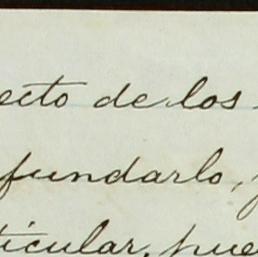 ecto de los
fundarlo,
ticular, pue